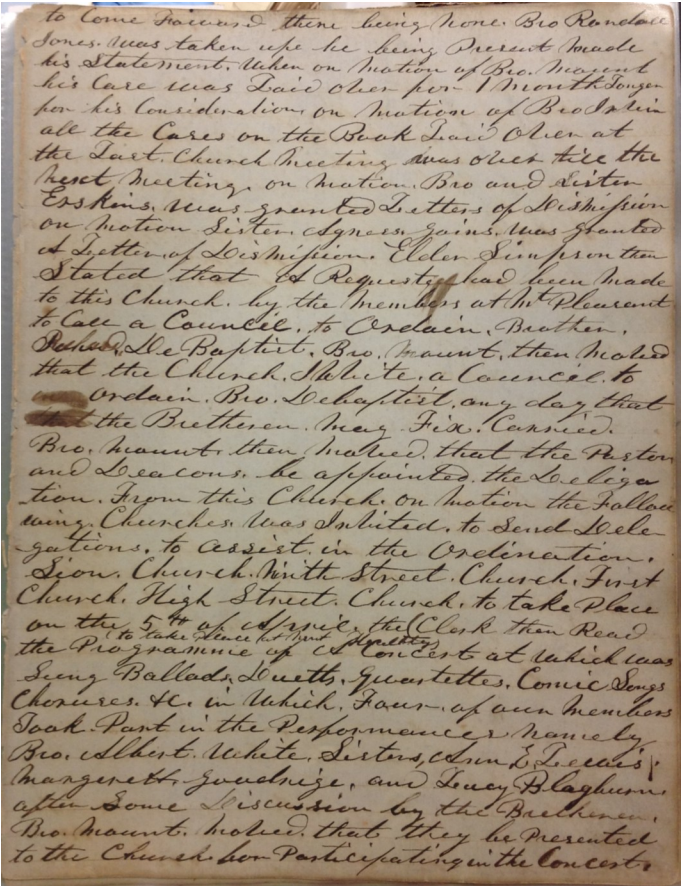 to Come Foward there being None. Bro Randall
Jones. was taken up. he being Present Made
his Statement. When on Motion of Bro. Mount
his Case was Laid over for 1 Month Longer
for his Consideration, on Motion of Bro Irvin
all the Cases on the Book Laid Over at
the Last. Church Meeting was over till the
next Meeting. on Motion. Bro and Sister
Erskins, was granted Letters of Dismission
on Motion Sister. Agness. gains. was granted
A Letter. of Dismission. Elder Simpson then
Stated that A Request had been Made
to this Church. by the Members at Mt Pleasant
to Call a Council. to Ordain. Brother.
DeBaptist. Bro. Mount. then Moved
that the Church. Invite. a Council to
Ordain. Bro. Debaptist. any day that
the Bretheren. May Fix. Carried.
Bro. Mount. then Moved. that the Pastor
and Deacons. be appointed. the Deliga
tion. From this Church. on Motion the Follow
wing. Churches. was Invited. to Send Dele-
-gations. to assist. in the Ordination.
Sion. Church. Ninth Street. Church. First
Church. High Street. Church. to take Place
on the 5th of April. the Clerk then Read
(to take place at
the Programme of A Concert at which was
Sung Ballads. Duetts. Quartettes. Comic Songs
Choruses. &c. in Which. Four. of our Members
Took. Part in the Performances Namely
Bro. Albert. White. Sisters, Ann E. Lewis
Margerett. Goodrige. and Lucy Blagburn.
after Some Discussion by the Bretheren.
Bro. Mount. Moved. that they be Presented
to the Church for Participating in the Concert.